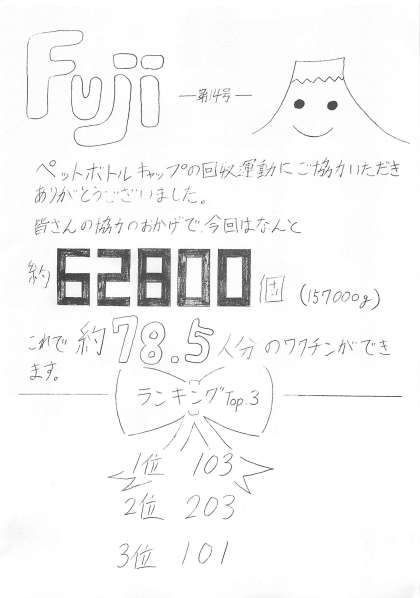 Fuji
—第14号—
ペットボトルキャップの回収運動にご協力いただき
ありがとうございました。
皆さんの協力のおかげで、今回はなんと
約62800個(157000g)
これで約78.5人分のワクチンができ
ます。
ランキングTop.3
1位 103
2位 203
3位 101